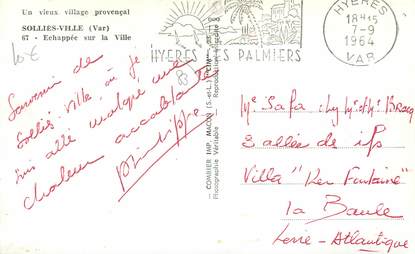 Un vieux village provençal
SOLLIES-VILLE (Var)
67 - Echappée sur la Ville
10 €
Souvenir de
Solliès-Ville, où je
suis allé malgré une
chaleur accablante
Philippe
COMBIER IMP. MACON
Photographie Véritable
Reproduction Interdite
HYERES LES PALMIERS
HYERES
18H15
7-9
1964
VAR
Safa chez
2 allée des ifs
Villa "Ker Fontaine"
La Baule
Loire-Atlantique